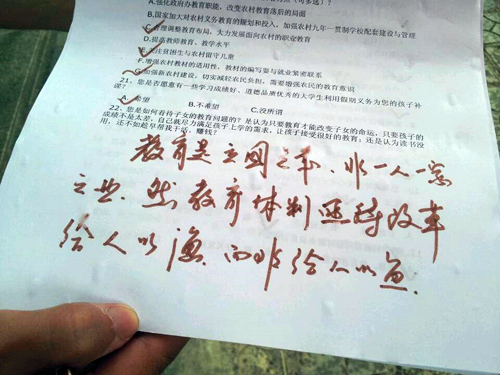 A.强化政府办教育职能，改变农村教育落后的局面
B.国家加大对农村义务教育的规划和投入，加强农村九年一贯制学校配套建设与管理
C.合理调整教育布局，大力发展面向农村的职业教育
D.提高教师教育、教学水平
E.关注贫困生与农村留守儿童
F.增强农村教材的适用性，教材的编写要与就业紧密联系
G.加强新农村建设，切实减轻农民负担，需要增强农民的教育意识
21、您是否愿意有一些学习成绩好、道德品质优秀的大学生利用假期义务为您的孩子补课？
A.希望 B.不希望 C.没所谓
22、您是如何看待子女的教育问题的？是认为只要教育才能改变子女的命运，只要孩子的
成绩不是太差，自己就尽力满足孩子上学的需求，让孩子接受很好的教育；还是认为读书没
用，还不如趁早帮我干活、赚钱？
教育是立国之本，非一人一家
之业，然教育体制还待改革
给人以渔 而非给人以鱼.